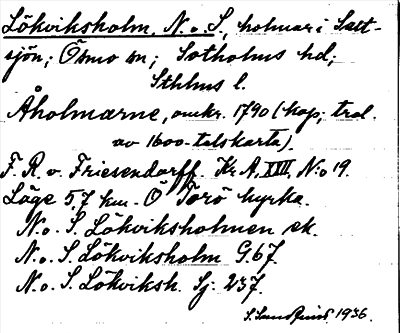 Lökviksholm, N. o S., holmar i Salt-
sjön; Ösmo sn; Sotholms hd;
Sthlms l.
Åholmarne, omkr. 1790 (kop; trol.
av 1600-talskarta).
F. R. v. Friesendorff. Kr. A. XVIII, N:o 19.
Läge 5,7 km. Ö Torö kyrka.
N. o. S. Lökviksholmen ek.
N. o. S. Lökviksholm G. 67.
N. o. S. Lökviksh. Sj. 237.
1936.